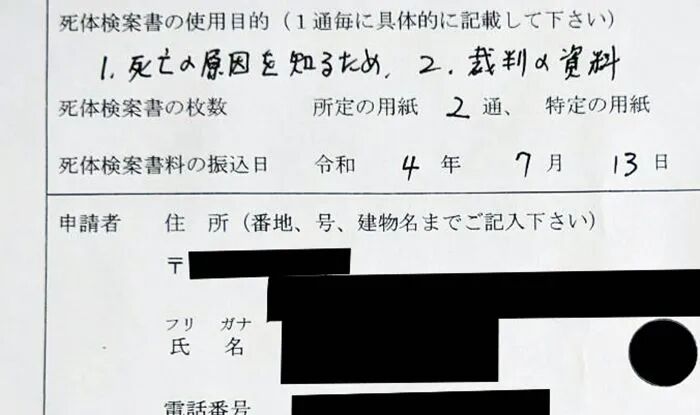 死体検案書の使用目的（１通毎に具体的に記載して下さい）
1. 死亡の原因を知るため、2. 裁判の資料
死体検案書の枚数　所定の用紙 2 通、　特定の用紙
死体検案書料の振込日　令和 4 年 7 月 13 日
申請者　住　所（番地、号、建物名までご記入下さい）
〒
フリ　ガナ
氏　名
電話番号